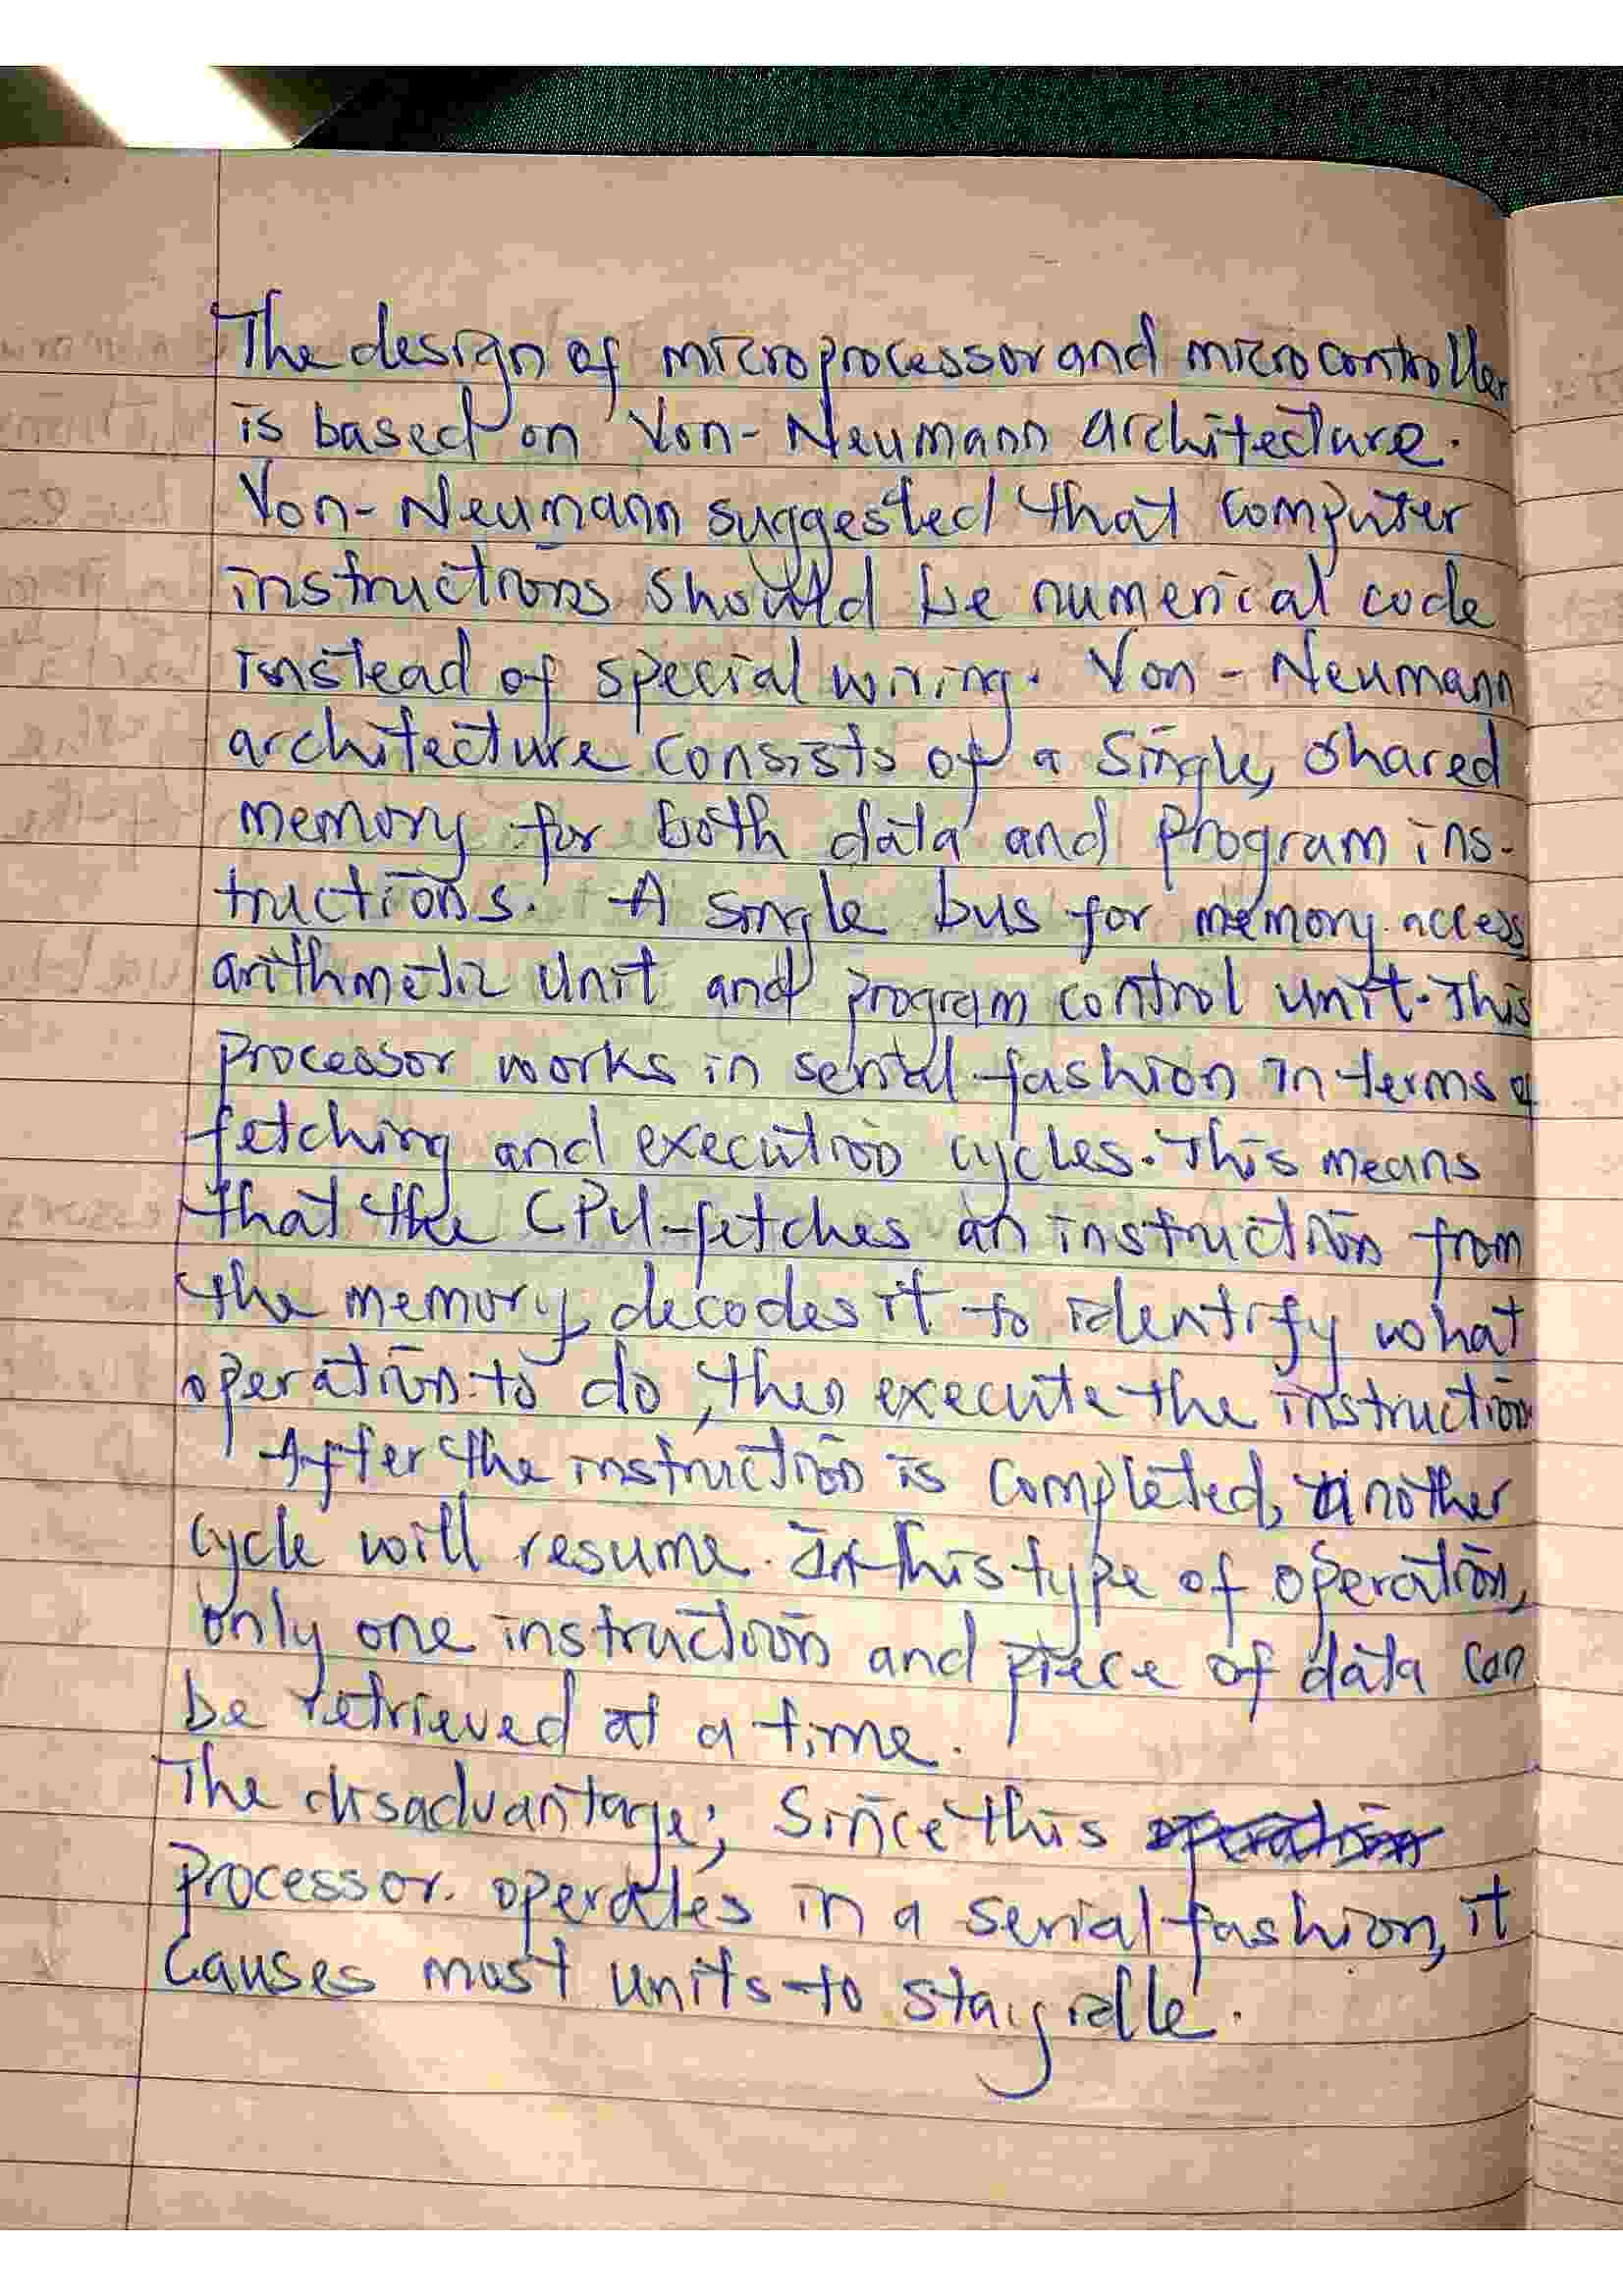 The design of microprocessor and microcontroller
is based on Von-Neumann architecture.
Von-Neumann suggested that computer
instructions should be numerical code
instead of special wiring. Von-Neumann
architecture consists of a single, shared
memory for both data and program ins-
tructions. A single bus for memory access
arithmetic unit and program control unit. This
processor works in serial fashion in terms of
fetching and execution cycles. This means
that the CPU fetches an instruction from
the memory, decodes it to identify what
operation to do, then execute the instruction
After the instruction is completed, another
cycle will resume. In this type of operation,
only one instruction and piece of data can
be retrieved at a time.
The disadvantage; Since this
processor. operates in a serial fashion, it
causes most units to stay idle.